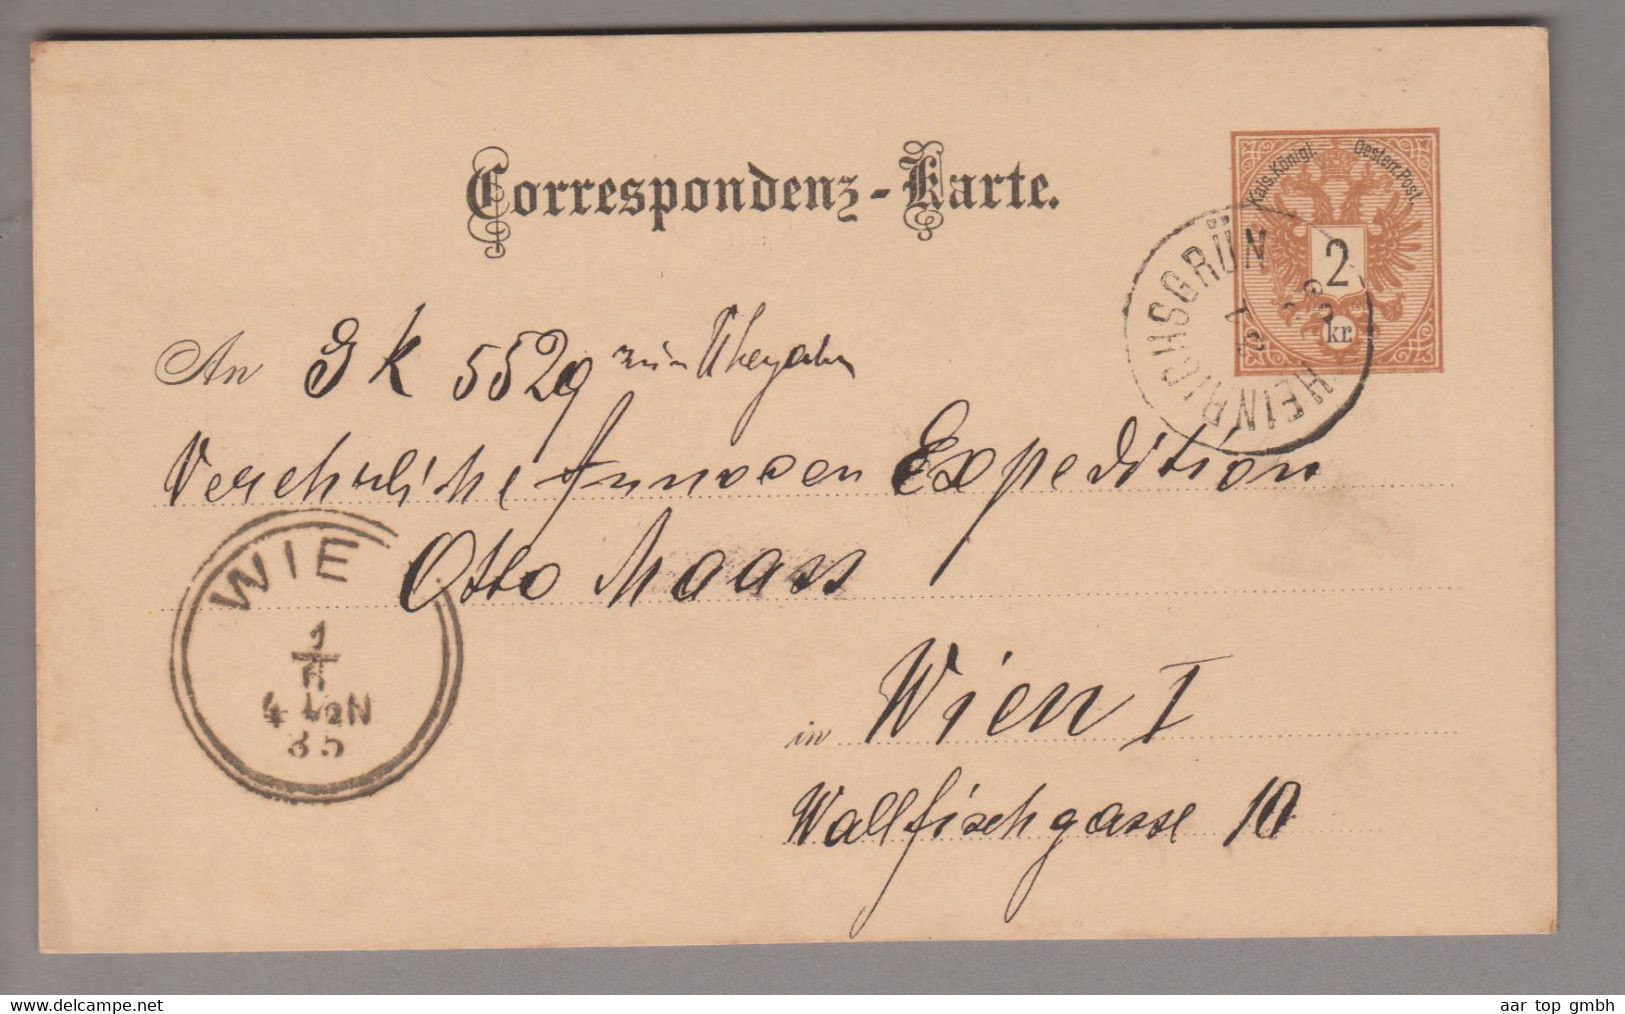 Correspondenz-Karte.
Kais. Königl. Oesterr. Post.
2
kr.
HEINRICHSGRÜN
An G K 5529 zur
Verehrliche Annoncen Expedition
Otto Maass
WIE
1
4 1/2 N
85
in Wien I
Wallfischgasse 10
www.delcampe.net
aar top gmbh